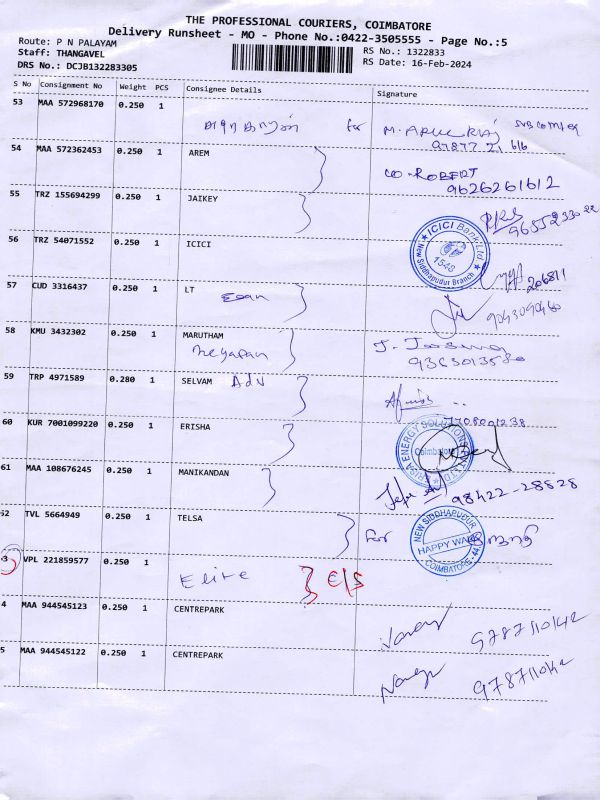 THE PROFESSIONAL COURIERS, COIMBATORE
Delivery Runsheet - MO - Phone No.:0422-3505555 - Page No.:5
Route: P N PALAYAM RS No.: 1322833
Staff: THANGAVEL RS Date: 16-Feb-2024
DRS No.: DCJB132283305
S No Consignment No Weight PCS Consignee Details Signature
53 MAA 572968170 0.250 1 for
54 MAA 572362453 0.250 1 AREM CO-ROBERT
9626261612
55 TRZ 155694299 0.250 1 JAIKEY
56 TRZ 54071552 0.250 1 ICICI ICICI Bank Ltd. New Siddhapudur Branch 1548
206811
57 CUD 3316437 0.250 1 LT
9043090460
58 KMU 3432302 0.250 1 MARUTHAM
9363013580
59 TRP 4971589 0.280 1 SELVAM Adv
60 KUR 7001099220 0.250 1 ERISHA ERISA ENERGY SOLUTIONS Coimbatore
61 MAA 108676245 0.250 1 MANIKANDAN 98422-28828
62 TVL 5664949 0.250 1 TELSA for NEW SIDDHAPUDUR HAPPY WAY COIMBATORE - 44
3 VPL 221859577 0.250 1 Elite C/S
4 MAA 944545123 0.250 1 CENTREPARK
5 MAA 944545122 0.250 1 CENTREPARK